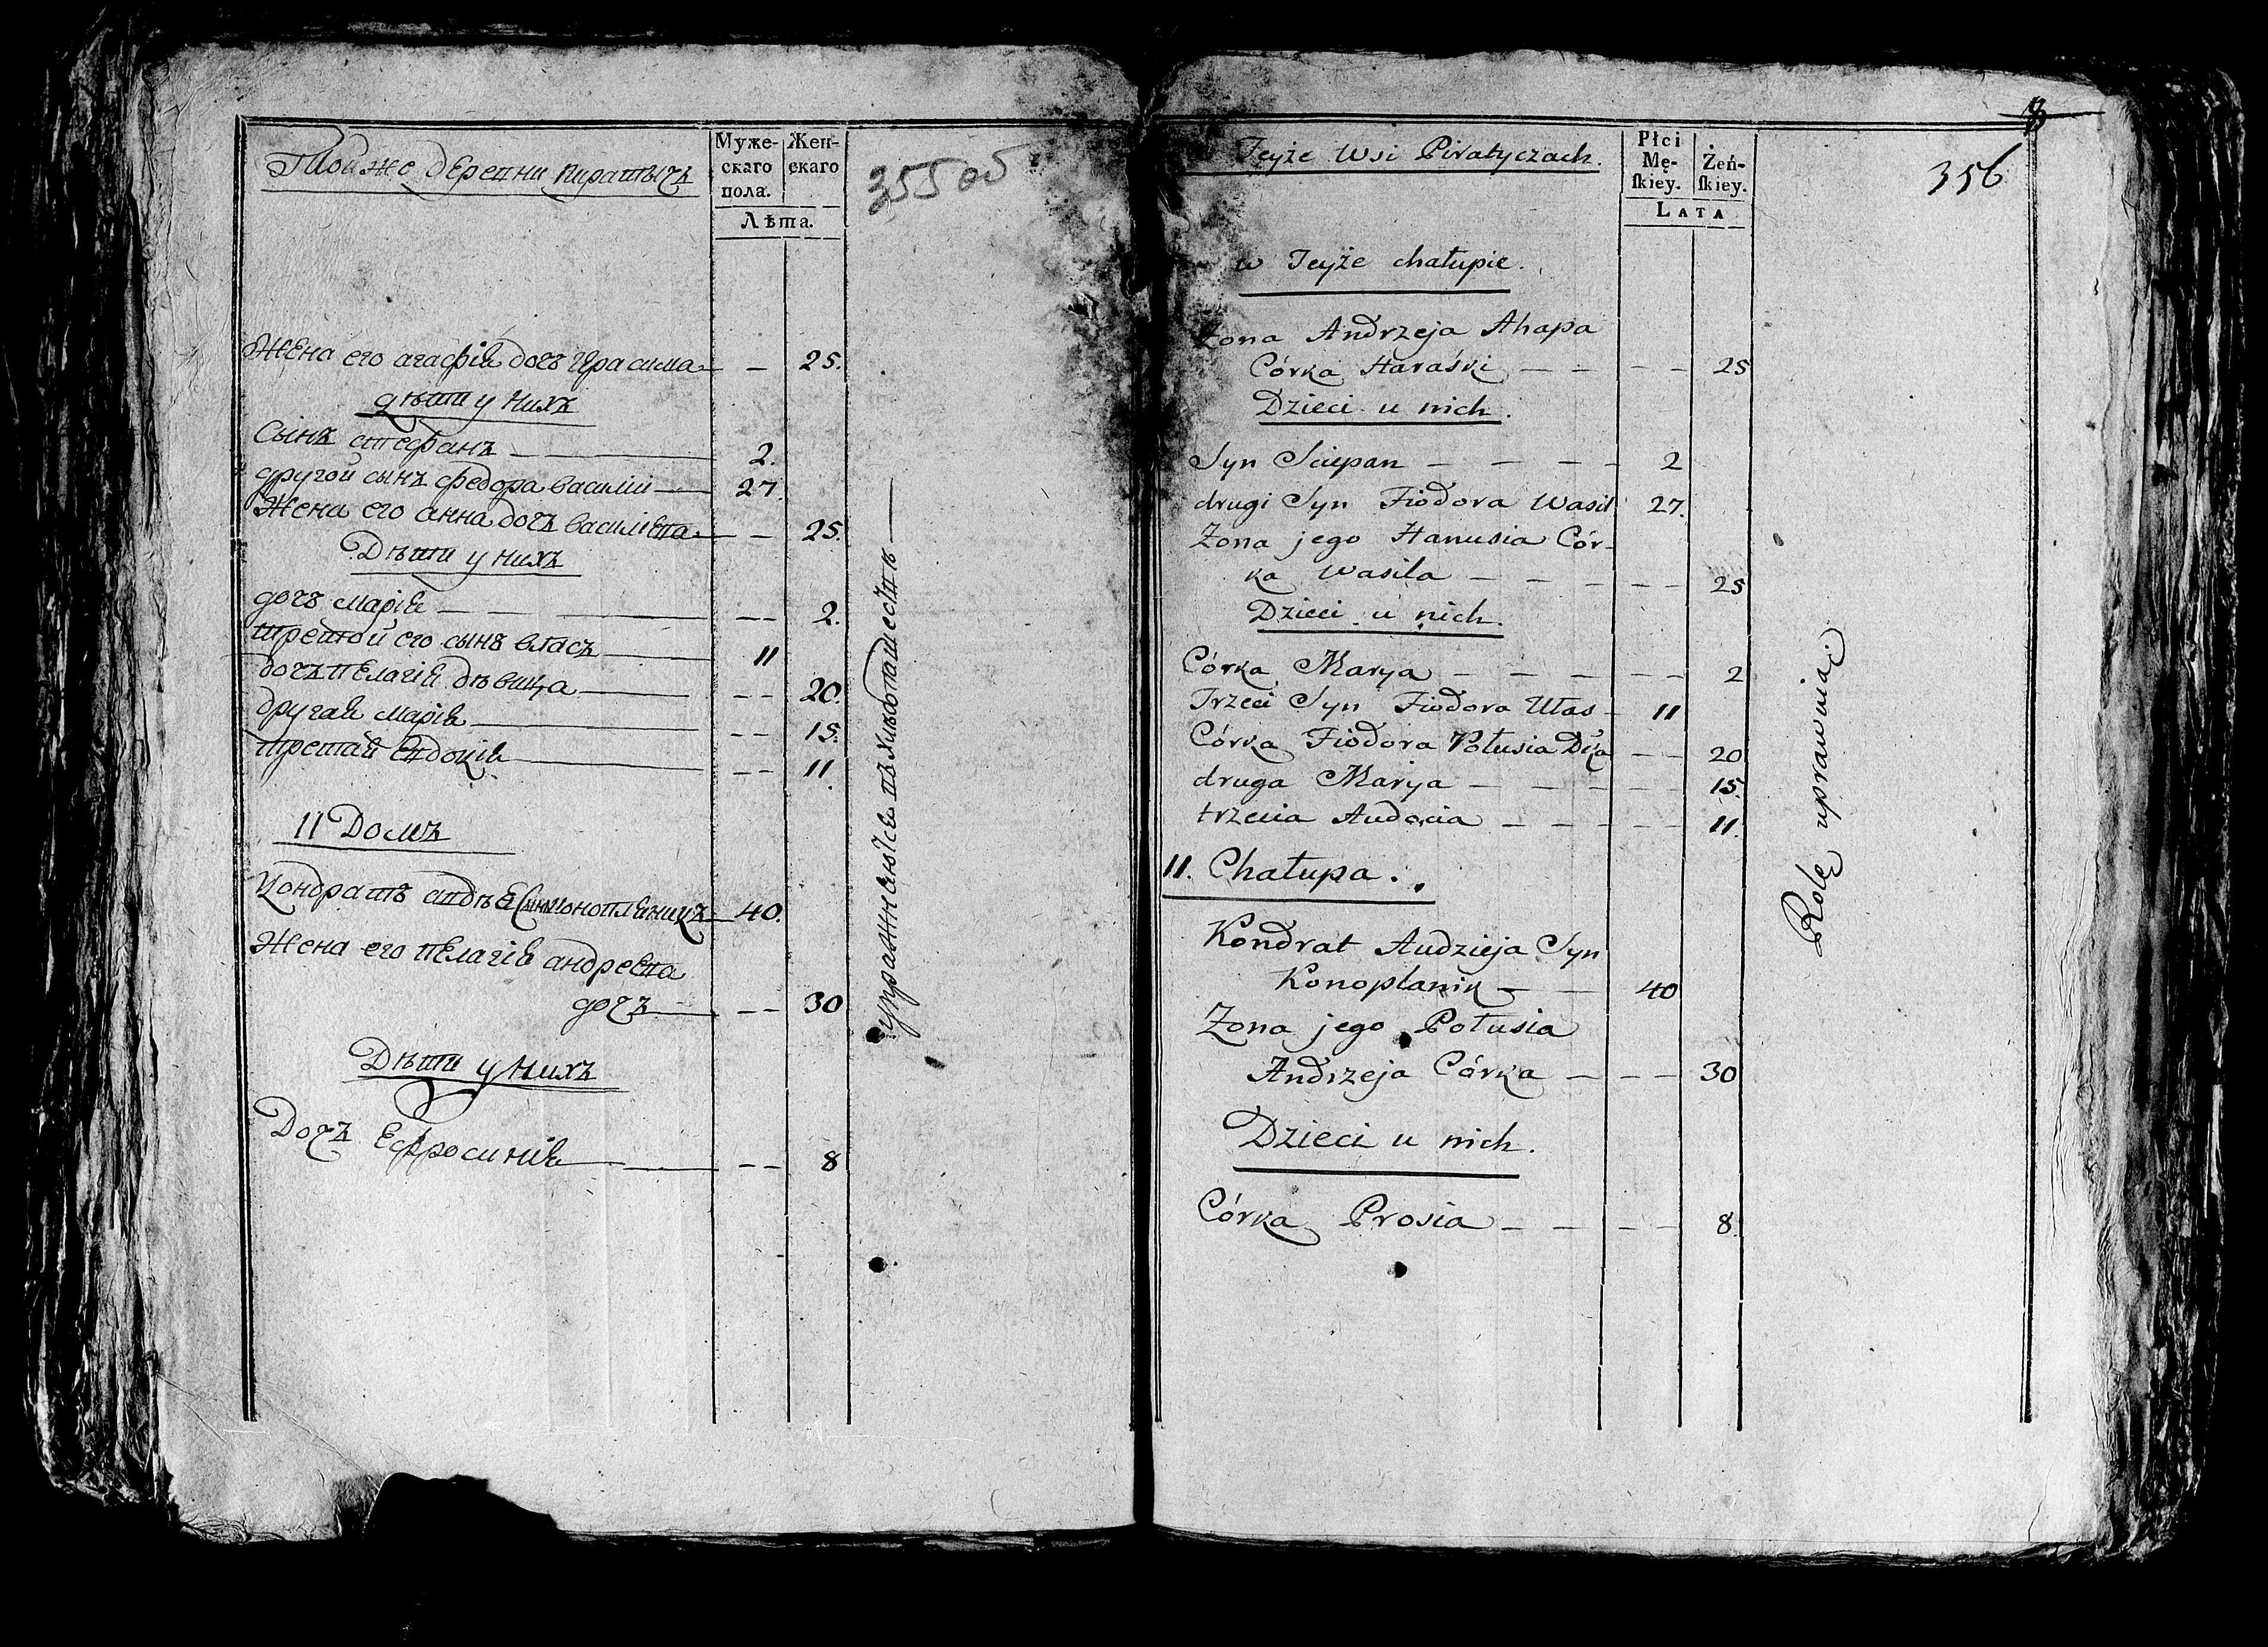 Той же деревни пиратычъ
Муже-
скаго
пола.
Жен-
скаго
Лѣта.
355 об
Жена его агафія дочъ Герасима — 25.
дѣти у нихъ
Сынъ стефанъ — 2.
другой сынъ федора василій — 27.
Жена его анна дочъ василѣва — 25.
Дѣти у нихъ
дочъ марія — 2.
третой его сынъ власъ — 11
дочъ пелагія дѣвица — 20.
другая марія — 15.
третая евдокія — 11.
11 Домъ
Кондратъ авдѣя Сынъ Конопляникъ — 40.
Жена его пелагія андрева
дочъ — 30
Дѣти у нихъ
Дочъ Ефросинія — 8
упражняются въ хлѣбопашествѣ —
Teyże Wsi Piratyczach.
Płci
Mę-
ſkiey.
Żeń-
ſkiey.
LATA
356
w Teyże chałupie.
Zona Andrzeja Ahapa
Córka Haraśki — 25
Dzieci u nich.
Syn Sciepan — 2
drugi Syn Fiodora Wasil 27.
Zona jego Hanusia Cór-
ka Wasila — 25
Dzieci u nich.
Córka Marya — 2
Trzeci Syn Fiodora Ułas — 11
Córka Fiodora Połusia Dka — 20
druga Marya — 15.
trzecia Audocia — 11.
11. Chałupa.
Kondrat Audzieja Syn
Konoplanik — 40
Zona jego Połusia
Andrzeja Córka — 30
Dzieci u nich.
Córka Prosia — 8.
Rolę uprawiaią